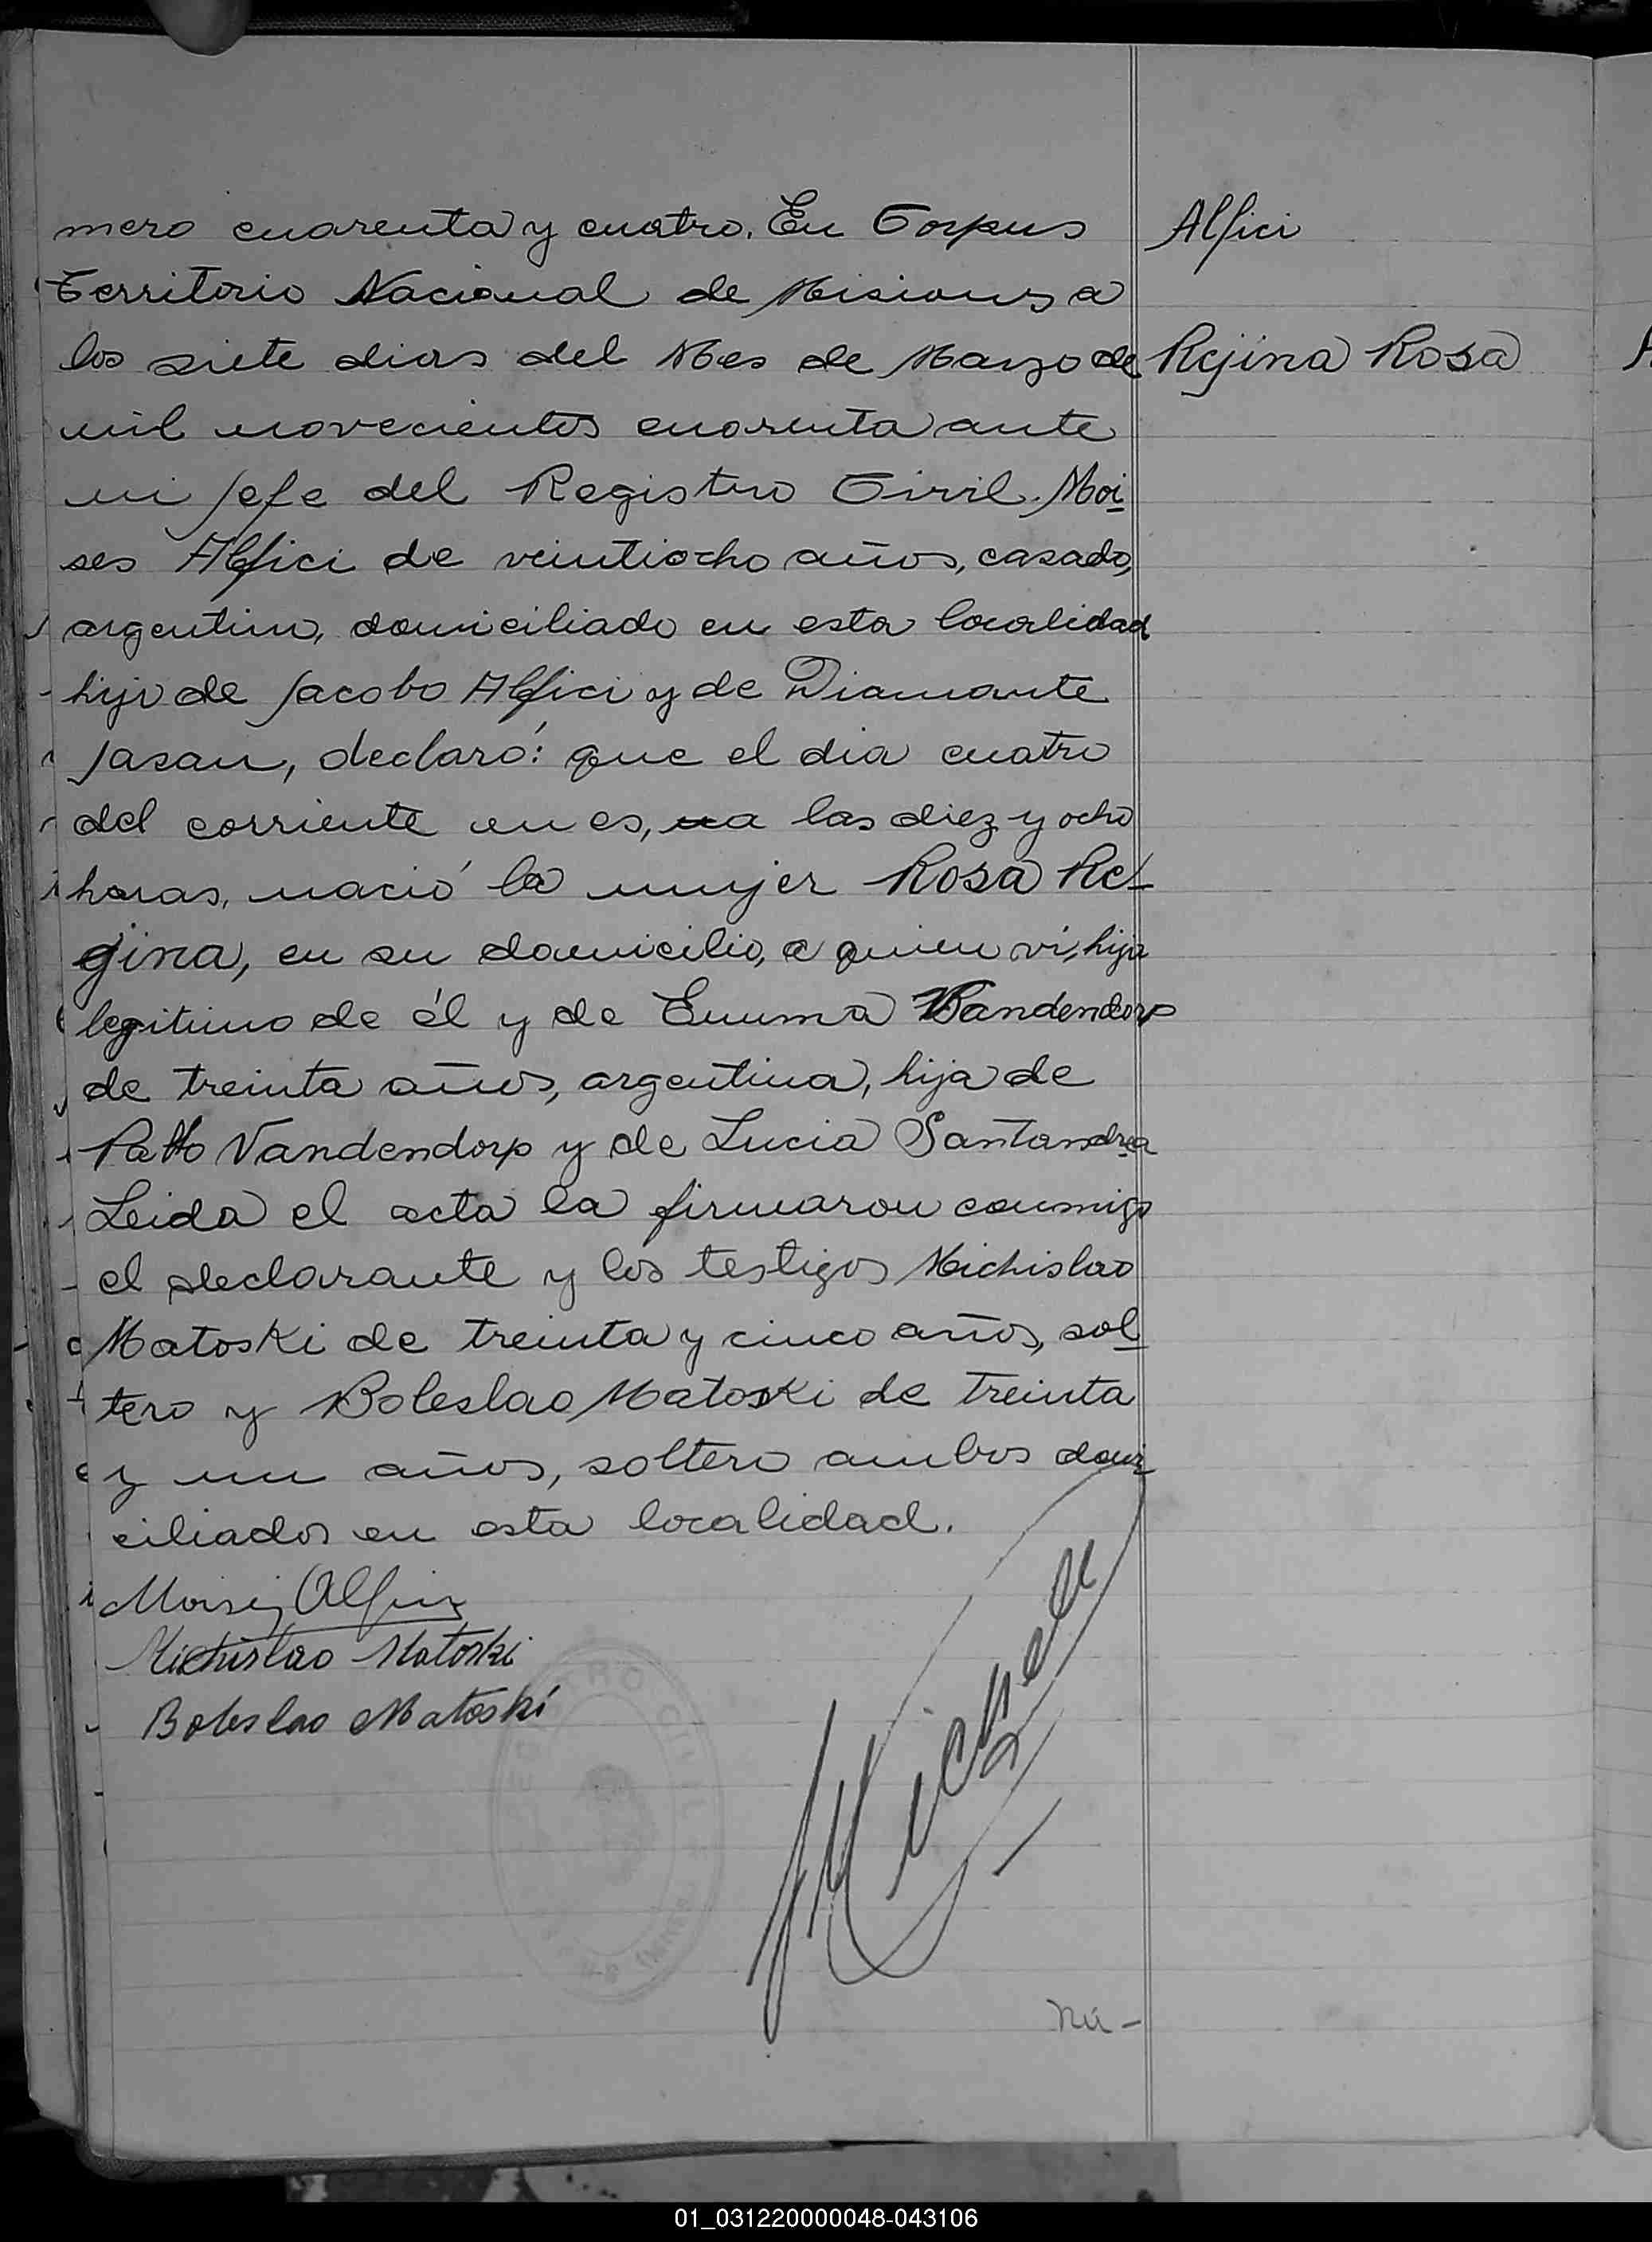 mero cuarenta y cuatro. En Corpus
Territorio Nacional de Misiones a
los siete dias del Mes de Marzo de
mil novecientos cuarenta ante
mi Jefe del Registro Civil. Moi-
ses Alfici de veintiocho años, casado,
argentino, domiciliado en esta localidad
hijo de Jacobo Alfici y de Diamante
Jasan, declaró: que el dia cuatro
del corriente mes, a las diez y ocho
horas, nació la mujer Rosa Re-
gina, en su domicilio, a quien vi, hija
legitimo de él y de Emma Vandendorp
de treinta años, argentina, hija de
Pablo Vandendorp y de Lucia Santandrea
Leida el acta la firmaron conmigo
el declarante y los testigos Michislao
Matoski de treinta y cinco años, sol-
tero y Boleslao Matoski de treinta
y un años, soltero ambos domi-
ciliados en esta localidad.
Moises Alfici
Michislao Matoski
Boleslao Matoski
Nú-
Alfici
Rejina Rosa
REGISTRO CIVIL
01_031220000048-043106